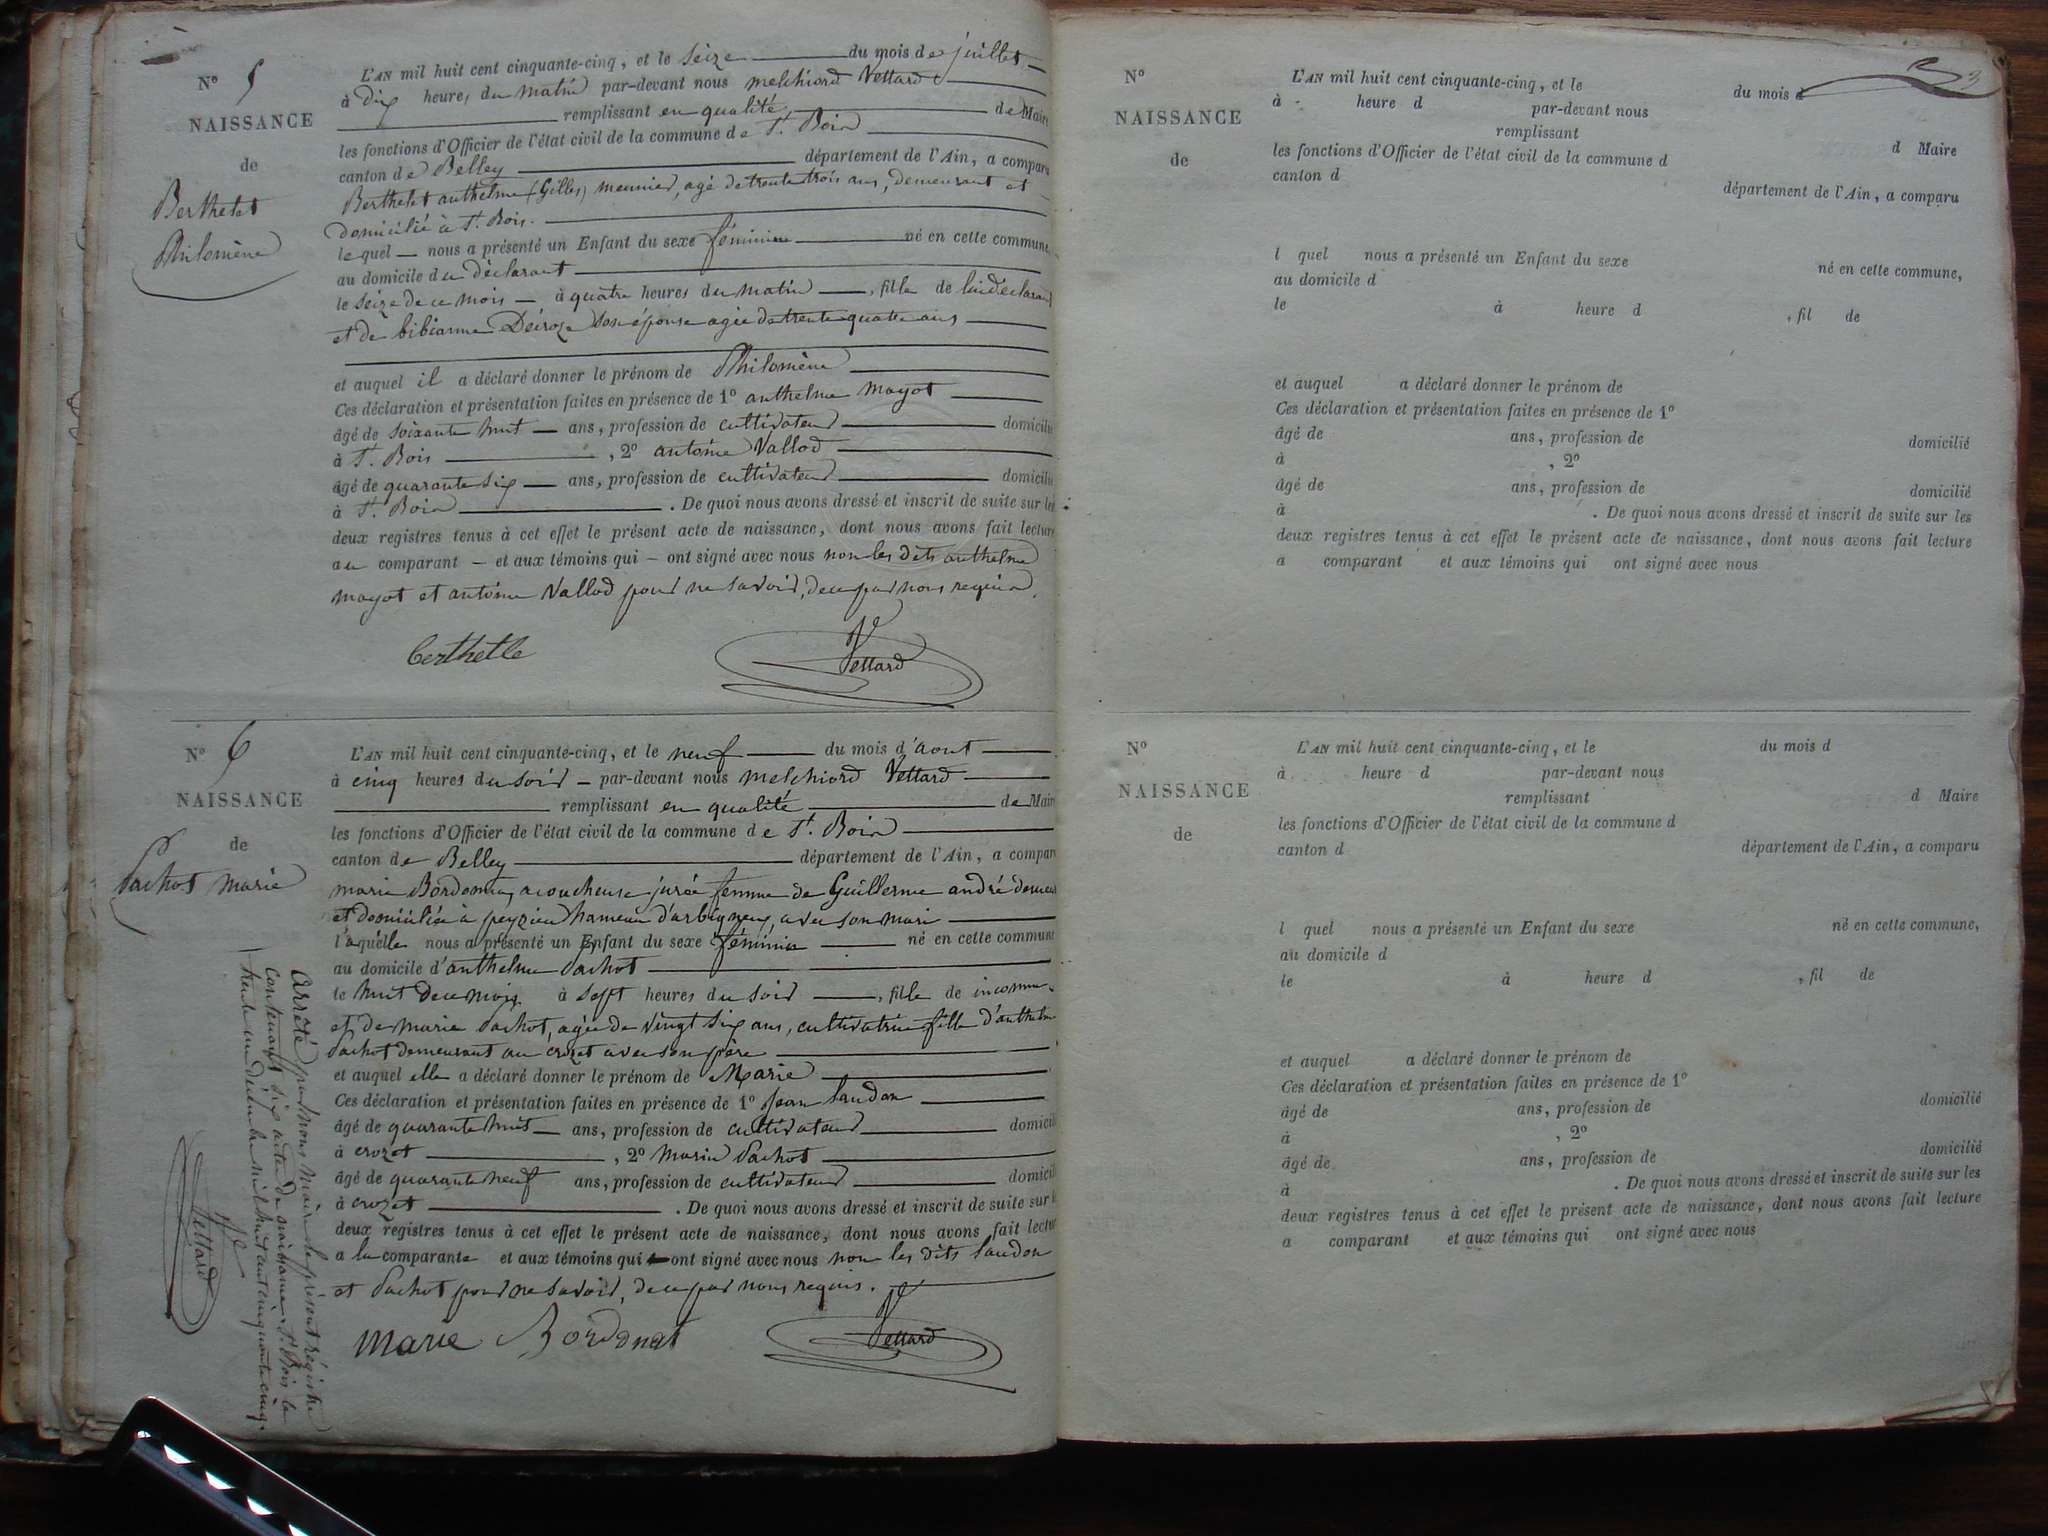 N° 5
NAISSANCE
de
Berthelet
Philomène
L'AN mil huit cent cinquante-cinq, et le seize du mois de juillet
à dix heures du matin par-devant nous melchiord Vettard
remplissant en qualité de Maire
les fonctions d'Officier de l'état civil de la commune de St. Bois
canton de Belley département de l'Ain, a comparu
Berthelet anthelme (Gilles) meunier, agé de trente trois ans, demeurant et
domicilié à St. Bois.
lequel nous a présenté un Enfant du sexe féminin né en cette commune
au domicile du déclarant
le seize de ce mois à quatre heures du matin, fille de lui déclarant
et de bibianne son épouse agée de trente quatre ans
et auquel il a déclaré donner le prénom de Philomène
Ces déclaration et présentation faites en présence de 1° anthelme mayot
âgé de soixante huit ans, profession de cultivateur domicilié
à St. Bois, 2° antoine Vallod
âgé de quarante six ans, profession de cultivateur domicilié
à St. Bois. De quoi nous avons dressé et inscrit de suite sur les
deux registres tenus à cet effet le présent acte de naissance, dont nous avons fait lecture
au comparant et aux témoins qui ont signé avec nous non les dits anthelme
mayot et antoine Vallod pour ne savoir, de ce par nous requis.
berthelle
Vettard
N° 6
NAISSANCE
de
Pachot marie
L'AN mil huit cent cinquante-cinq, et le neuf du mois d'aout
à cinq heures du soir par-devant nous melchiord Vettard
remplissant en qualité de Maire
les fonctions d'Officier de l'état civil de la commune de St. Bois
canton de Belley département de l'Ain, a comparu
marie acoucheuse jurée femme de Guillerme andré demeur
et domiciliée à peyzieu hameau d'arbigneu, avec son mari
laquelle nous a présenté un Enfant du sexe féminin né en cette commune
au domicile d'anthelme Pachot
le huit de ce mois à sept heures du soir, fille de inconnu
et de marie Pachot, agée de vingt six ans, cultivatrice fille d'anthelme
Pachot demeurant au crozet avec son père
et auquel elle a déclaré donner le prénom de Marie
Ces déclaration et présentation faites en présence de 1° Jean Landon
âgé de quarante huit ans, profession de cultivateur domicilié
à crozet, 2° Marin Pachot
âgé de quarante neuf ans, profession de cultivateur domicilié
à crozet. De quoi nous avons dressé et inscrit de suite sur les
deux registres tenus à cet effet le présent acte de naissance, dont nous avons fait lecture
a la comparante et aux témoins qui ont signé avec nous non les dits Landon
et Pachot pour ne savoir, de ce par nous requis.
Marie Bordonat
Vettard
Arrêté par nous Maire le présent régistre
contenant six actes de naissance. St. Bois le
trente un décembre mil huit cent cinquante cinq.
Vettard
N°
NAISSANCE
de
L'AN mil huit cent cinquante-cinq, et le du mois d
à heure d par-devant nous
remplissant d Maire
les fonctions d'Officier de l'état civil de la commune d
canton d département de l'Ain, a comparu
l quel nous a présenté un Enfant du sexe né en cette commune,
au domicile d
le à heure d , fil de
et auquel a déclaré donner le prénom de
Ces déclaration et présentation faites en présence de 1°
âgé de ans, profession de domicilié
à , 2°
âgé de ans, profession de domicilié
à . De quoi nous avons dressé et inscrit de suite sur les
deux registres tenus à cet effet le présent acte de naissance, dont nous avons fait lecture
a comparant et aux témoins qui ont signé avec nous
N°
NAISSANCE
de
L'AN mil huit cent cinquante-cinq, et le du mois d
à heure d par-devant nous
remplissant d Maire
les fonctions d'Officier de l'état civil de la commune d
canton d département de l'Ain, a comparu
l quel nous a présenté un Enfant du sexe né en cette commune,
au domicile d
le à heure d , fil de
et auquel a déclaré donner le prénom de
Ces déclaration et présentation faites en présence de 1°
âgé de ans, profession de domicilié
à , 2°
âgé de ans, profession de domicilié
à . De quoi nous avons dressé et inscrit de suite sur les
deux registres tenus à cet effet le présent acte de naissance, dont nous avons fait lecture
a comparant et aux témoins qui ont signé avec nous